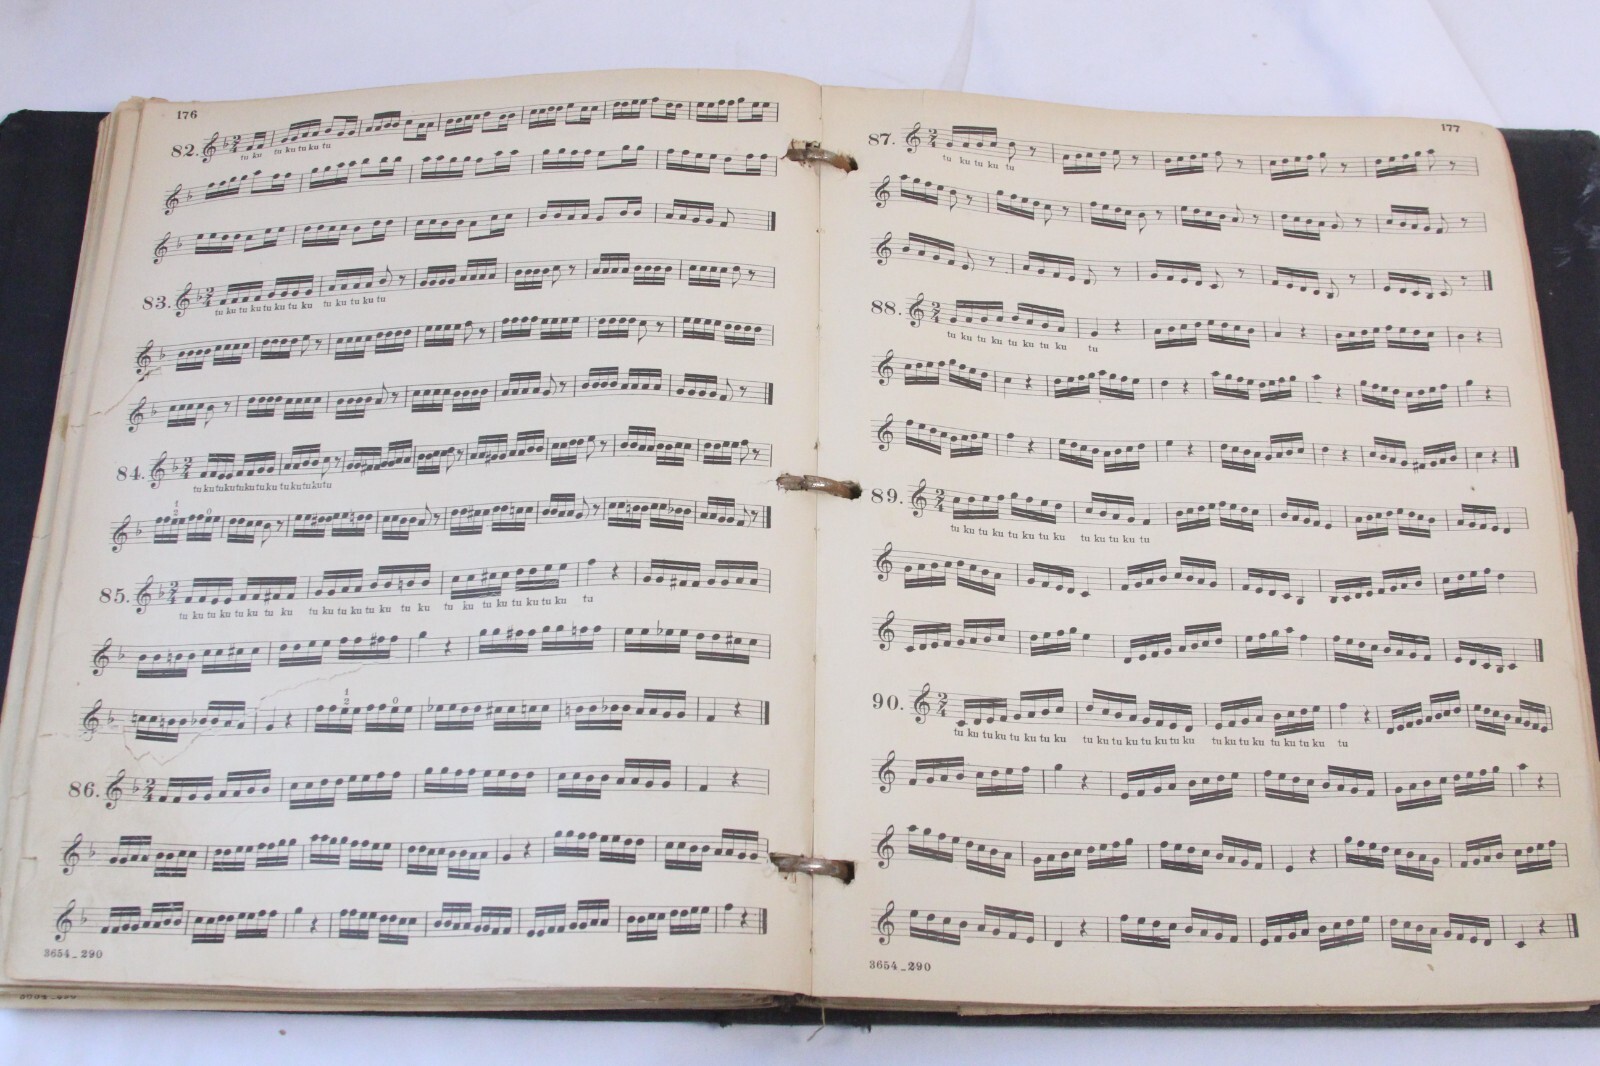 176
82.
tu ku tu ku tu ku tu
83.
tu ku tu ku tu ku tu ku tu ku tu ku tu
84.
tu ku tu ku tu ku tu ku tu ku tu ku tu
1
2 0
85.
tu ku tu ku tu ku tu ku tu ku tu ku tu ku tu ku tu ku tu ku tu ku tu ku tu
1
2 0
86.
3654_290
177
87.
tu ku tu ku tu
88.
tu ku tu ku tu ku tu ku tu
89.
tu ku tu ku tu ku tu ku tu ku tu ku tu
90.
tu ku tu ku tu ku tu ku tu ku tu ku tu ku tu ku tu ku tu ku tu ku tu ku tu
3654_290